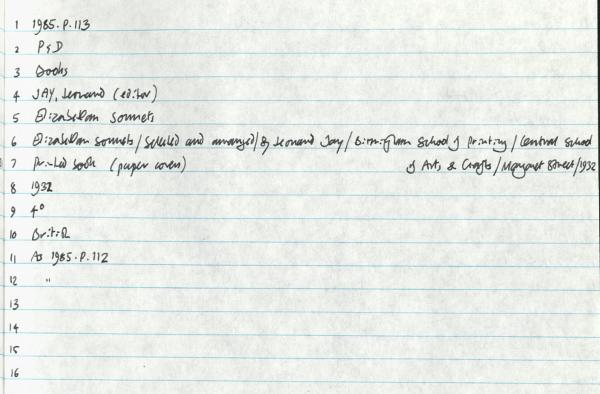 1 1985.P.113
2 P&D
3 Books
4 JAY, Leonard (editor)
5 Elizabethan sonnets
6 Elizabethan sonnets / Selected and arranged / by Leonard Jay / Birmingham School of Printing / Central School
7 Printed book (paper cover) of Arts & Crafts / Margaret Street / 1932
8 1932
9 4°
10 British
11 As 1985.P.112
12 "
13
14
15
16